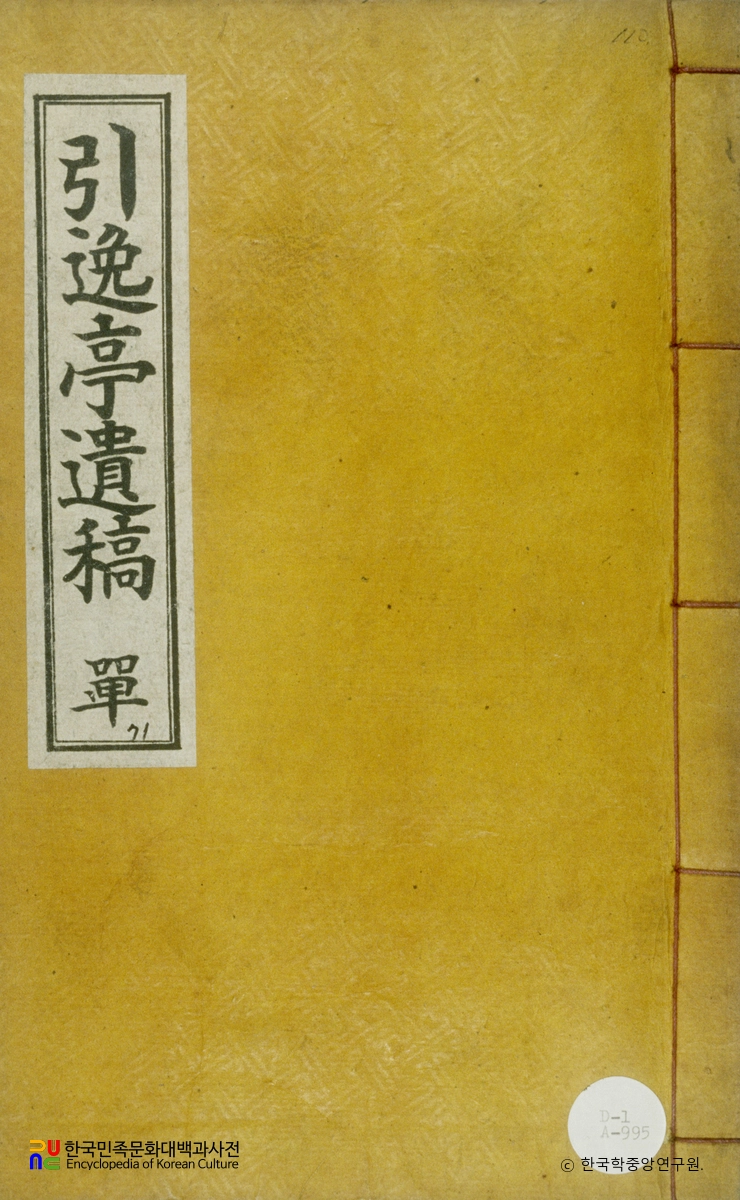 110.
引逸亭遺稿 單
71
D-1
A-995
한국민족문화대백과사전
Encyclopedia of Korean Culture
© 한국학중앙연구원.